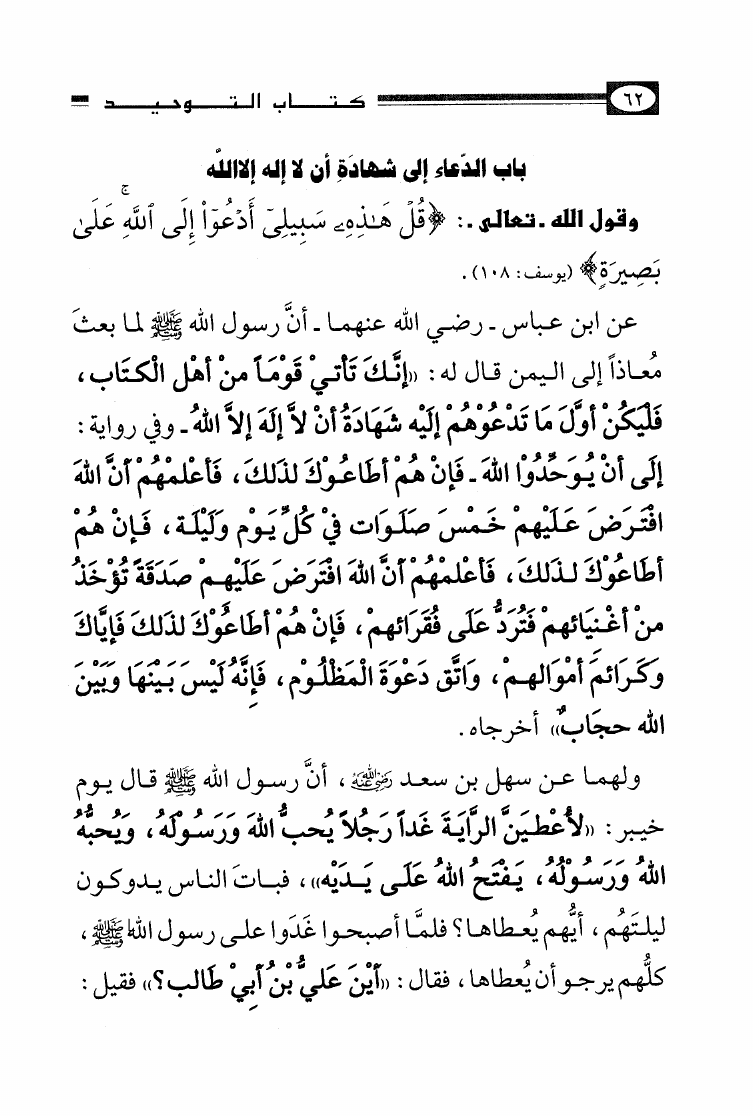 ٦٢ كتاب التوحيد
باب الدّعاء إلى شهادَةِ أن لا إله إلاالله
وقول الله . تعالى .: ﴿قُلْ هَـٰذِهِۦ سَبِيلِىٓ أَدْعُوٓا۟ إِلَى ٱللَّهِ ۚ عَلَىٰ
بَصِيرَةٍ﴾ (يوسف: ١٠٨).
عن ابن عباس ـ رضي الله عنهما ـ أنَّ رسول الله ﷺ لما بعثَ
مُعاذاً إلى اليمن قال له: «إنَّكَ تَأتيْ قَوْمَاً منْ أهْل الْكتَاب،
فَلْيَكُنْ أوَّلَ مَا تَدْعُوْهُمْ إلَيْه شَهَادَةُ أنْ لاَّ إلَهَ إلاَّ اللهُ ـ وفي رواية:
إلَى أنْ يُوَحِّدُوْا اللهَ ـ فَإنْ هُمْ أطَاعُوْكَ لذَلكَ، فَأعْلمْهُمْ أنَّ اللهَ
افْتَرَضَ عَلَيْهمْ خَمْسَ صَلَوَات فيْ كُلِّ يَوْم وَلَيْلَة، فَإنْ هُمْ
أطَاعُوْكَ لذَلكَ، فَأعْلمْهُمْ أنَّ اللهَ افْتَرَضَ عَلَيْهمْ صَدَقَةً تُؤْخَذُ
منْ أغْنيَائهمْ فَتُرَدُّ عَلَى فُقَرَائهمْ، فَإنْ هُمْ أطَاعُوْكَ لذَلكَ فَإيَّاكَ
وَكَرَائمَ أمْوَالهمْ، وَاتَّق دَعْوَةَ الْمَظْلُوْم، فَإنَّهُ لَيْسَ بَيْنَهَا وَبَيْنَ
الله حجَابٌ» أخرجاه.
ولهما عن سهل بن سعد رضي الله عنه، أنَّ رسول الله ﷺ قال يوم
خيبر: «لأعْطيَنَّ الرَّايَةَ غَداً رَجُلاً يُحبُّ اللهَ وَرَسُوْلَهُ، وَيُحبُّهُ
اللهُ وَرَسُوْلُهُ، يَفْتَحُ اللهُ عَلَى يَدَيْه»، فباتَ الناس يدوكون
ليلتَهُم، أيُّهم يُعطاها؟ فلمَّا أصبحوا غَدَوا على رسول الله ﷺ،
كلُّهم يرجو أن يُعطاها، فقال: «أيْنَ عَليُّ بْنُ أبيْ طَالب؟» فقيل: